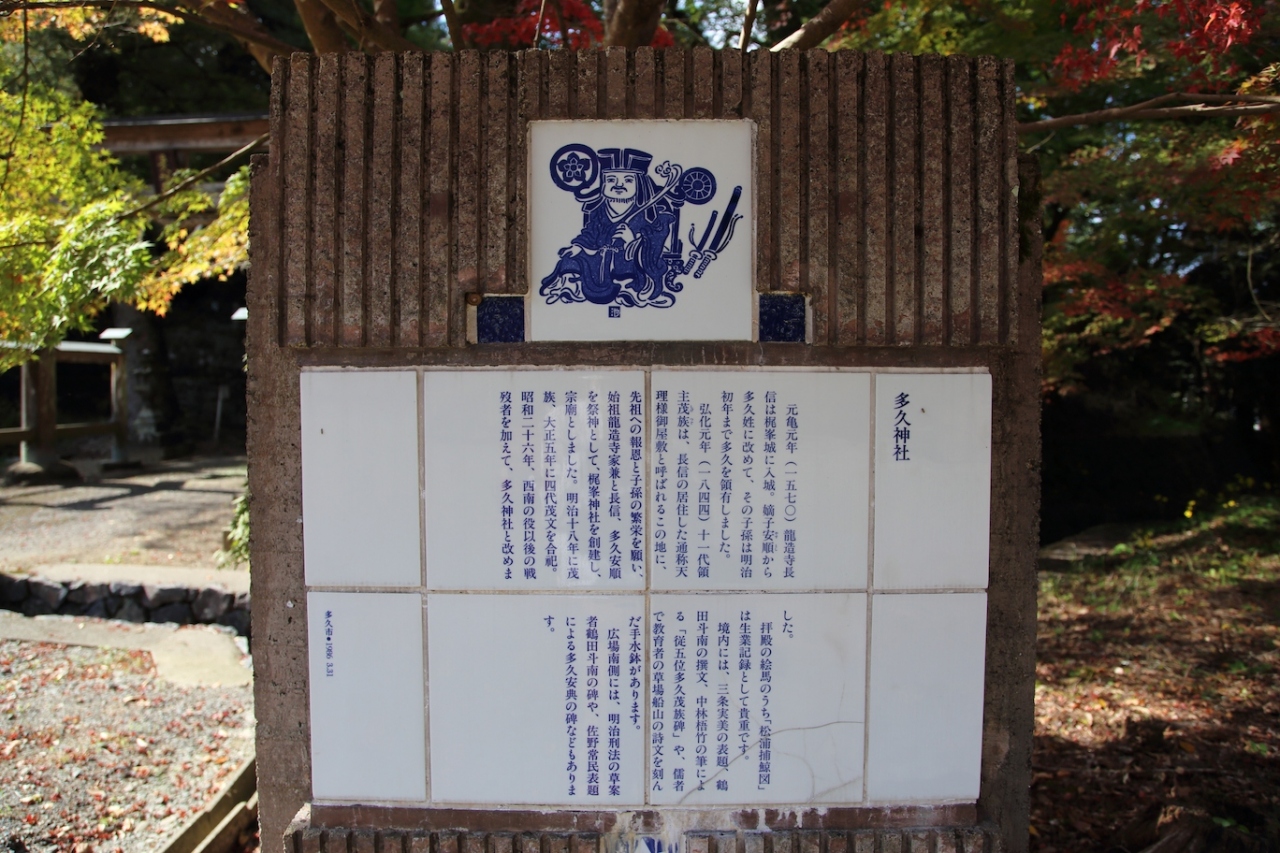 多久神社
元亀元年(一五七〇)龍造寺長
信は梶峯城に入城。嫡子安順から
多久姓に改めて、その子孫は明治
初年まで多久を領有しました。
弘化元年(一八四四)十一代領
主茂族は、長信の居住した通称天
理様御屋敷と呼ばれるこの地に、
先祖への報恩と子孫の繁栄を願い、
始祖龍造寺家兼と長信、多久安順
を祭神として、梶峯神社を創建し、
宗廟としました。明治十八年に茂
族、大正五年に四代茂文を合祀。
昭和二十六年、西南の役以後の戦
歿者を加えて、多久神社と改めま
した。
拝殿の絵馬のうち「松浦捕鯨図」
は生業記録として貴重です。
境内には、三条実美の表題、鶴
田斗南の撰文、中林梧竹の筆によ
る「従五位多久茂族碑」や、儒者
で教育者の草場船山の詩文を刻ん
だ手水鉢があります。
広場南側には、明治刑法の草案
者鶴田斗南の碑や、佐野常民表題
による多久安典の碑などもありま
す。
多久市●1986 3.31